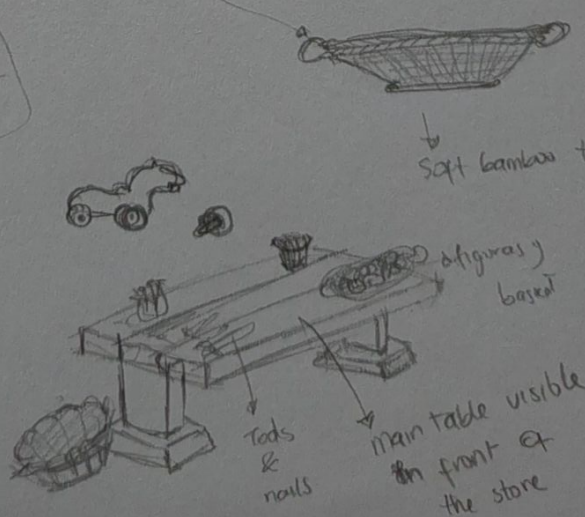 Soft bamboo
basket
Tools
&
nails
main table visible
in front of
the store